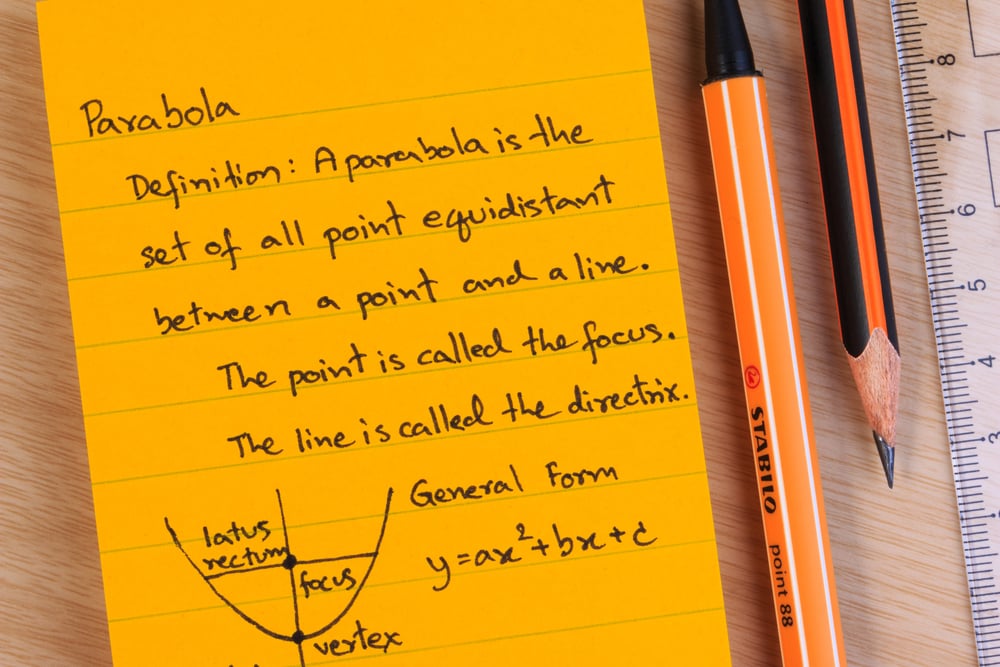 Parabola
Definition: A parabola is the
set of all point equidistant
between a point and a line.
The point is called the focus.
The line is called the directrix.
General Form
y=ax²+bx+c
latus
rectum
focus
vertex
STABILO point 88
8
7
6
5
4
3